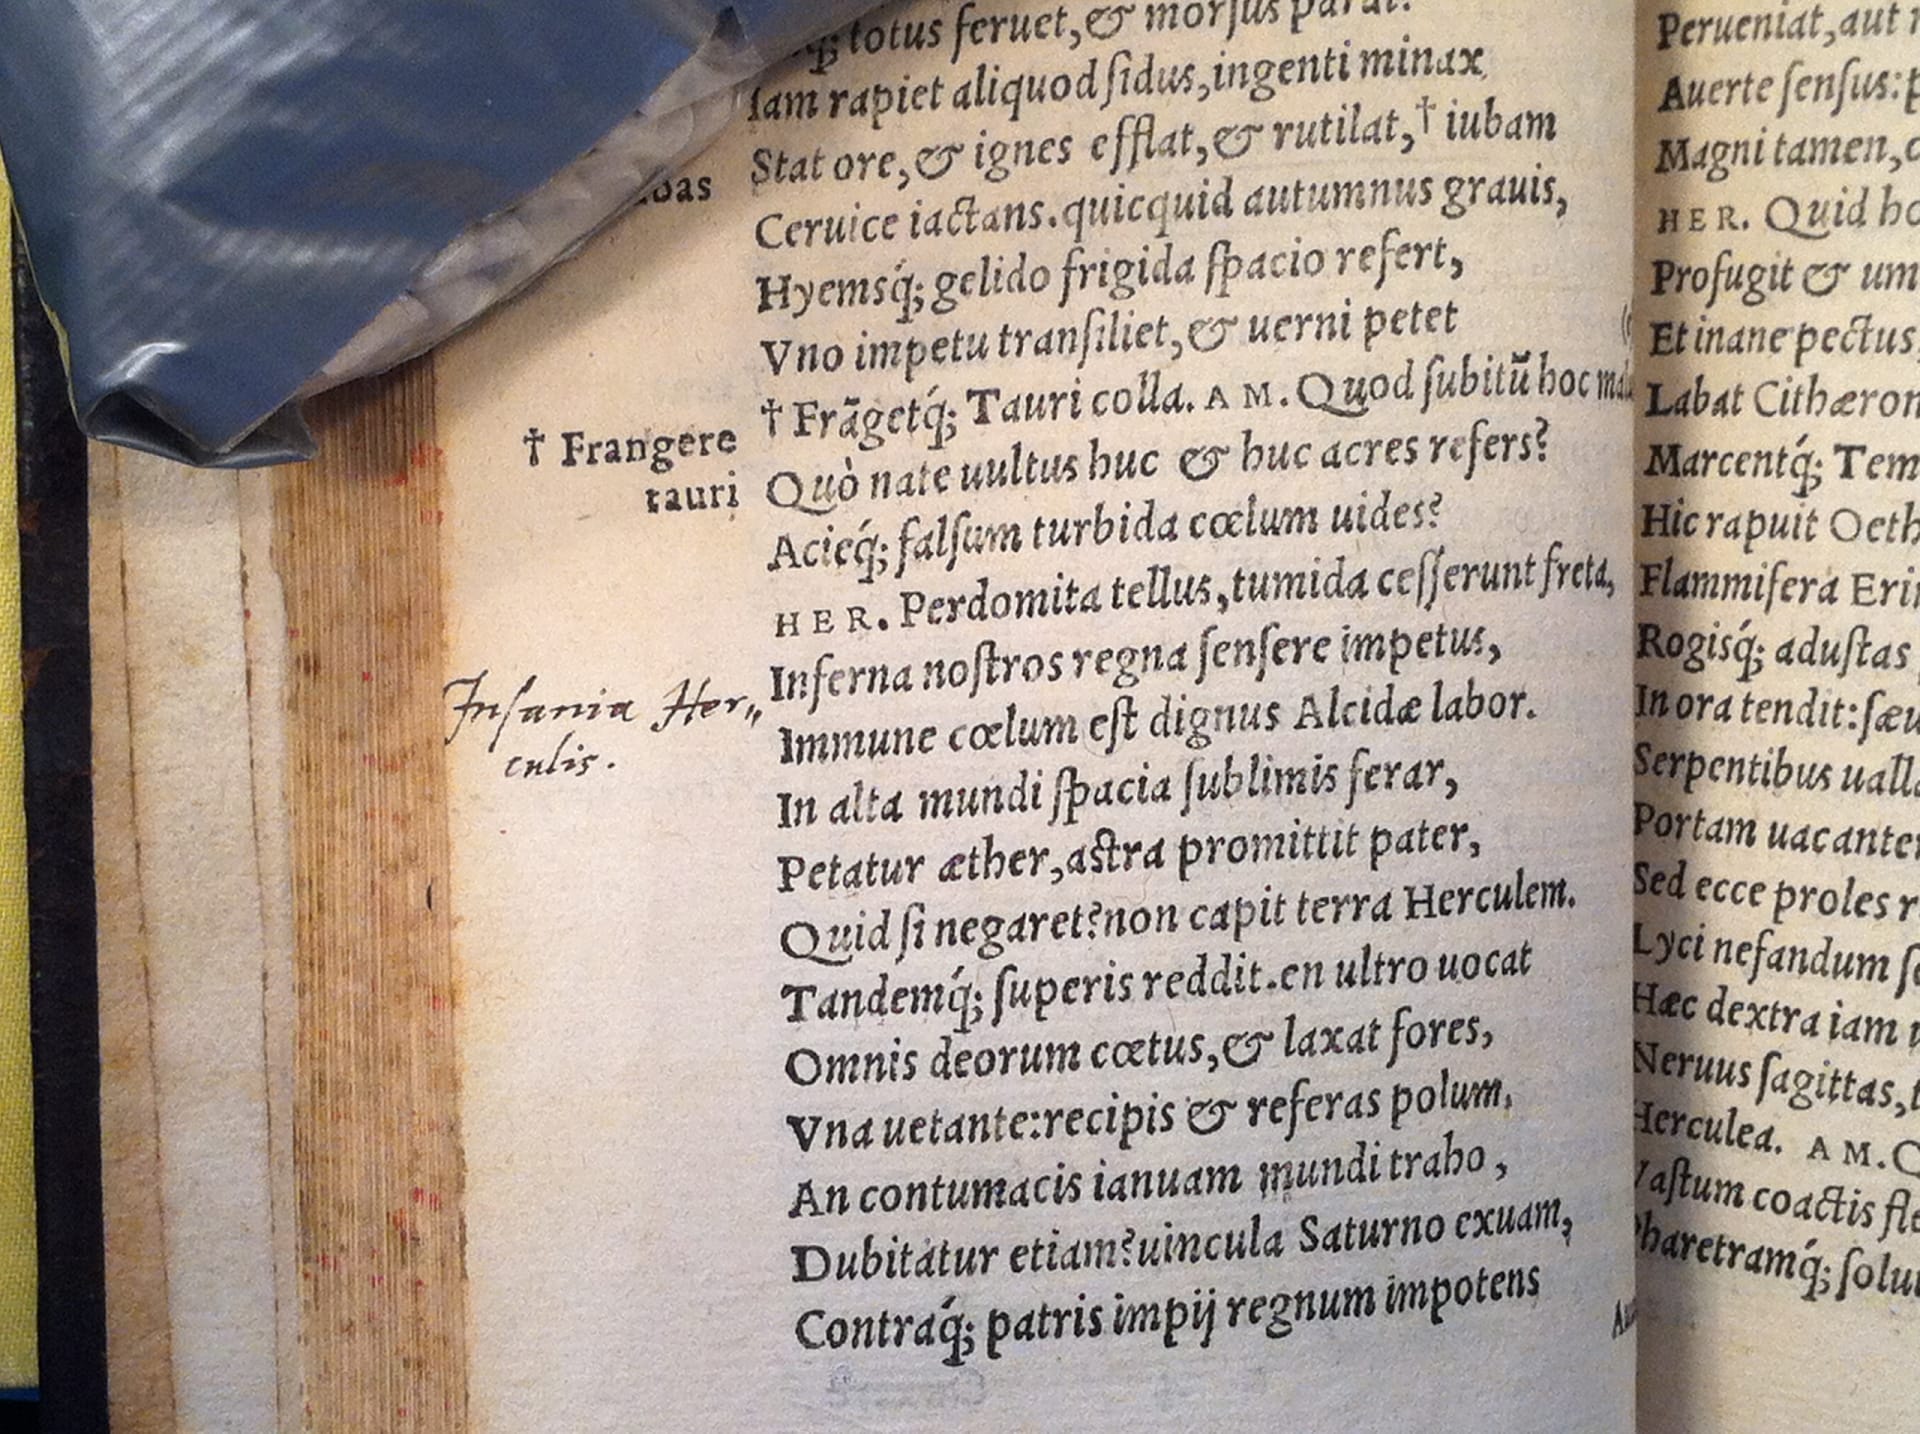 totus feruet, & morſus parat.
Iam rapiet aliquod ſidus, ingenti minax
Stat ore, & ignes efflat, & rutilat, † iubam
Ceruice iactans. quicquid autumnus grauis,
Hyemsq́; gelido frigida ſpacio refert,
Vno impetu tranſiliet, & uerni petet
† Frãgetq́; Tauri colla. AM. Quod ſubitũ hoc
Quò nate uultus huc & huc acres refers?
Acieq́; falſum turbida cœlum uides?
HER. Perdomita tellus, tumida ceſſerunt freta,
Inferna noſtros regna ſenſere impetus,
Immune cœlum eſt dignus Alcidæ labor.
In alta mundi ſpacia ſublimis ferar,
Petatur æther, aſtra promittit pater,
Quid ſi negaret? non capit terra Herculem.
Tandemq́; ſuperis reddit. en ultro uocat
Omnis deorum cœtus, & laxat fores,
Vna uetante: recipis & referas polum,
An contumacis ianuam mundi traho,
Dubitatur etiam? uincula Saturno exuam,
Contraq́; patris impij regnum impotens
† Frangere
tauri
Inſania Her„
culis.
Perueniat, aut
Auerte ſenſus:
Magni tamen,
HER. Quid
Profugit &
Et inane pectus
Labat Cithæron
Marcentq́;
Hic rapuit
Flammifera
Rogisq́; aduſtas
In ora tendit:
Serpentibus
Portam
Sed ecce proles
Lyci nefandum
Hæc dextra iam
Neruus ſagittas,
Herculea. AM.
Vaſtum coactis
Pharetramq́;